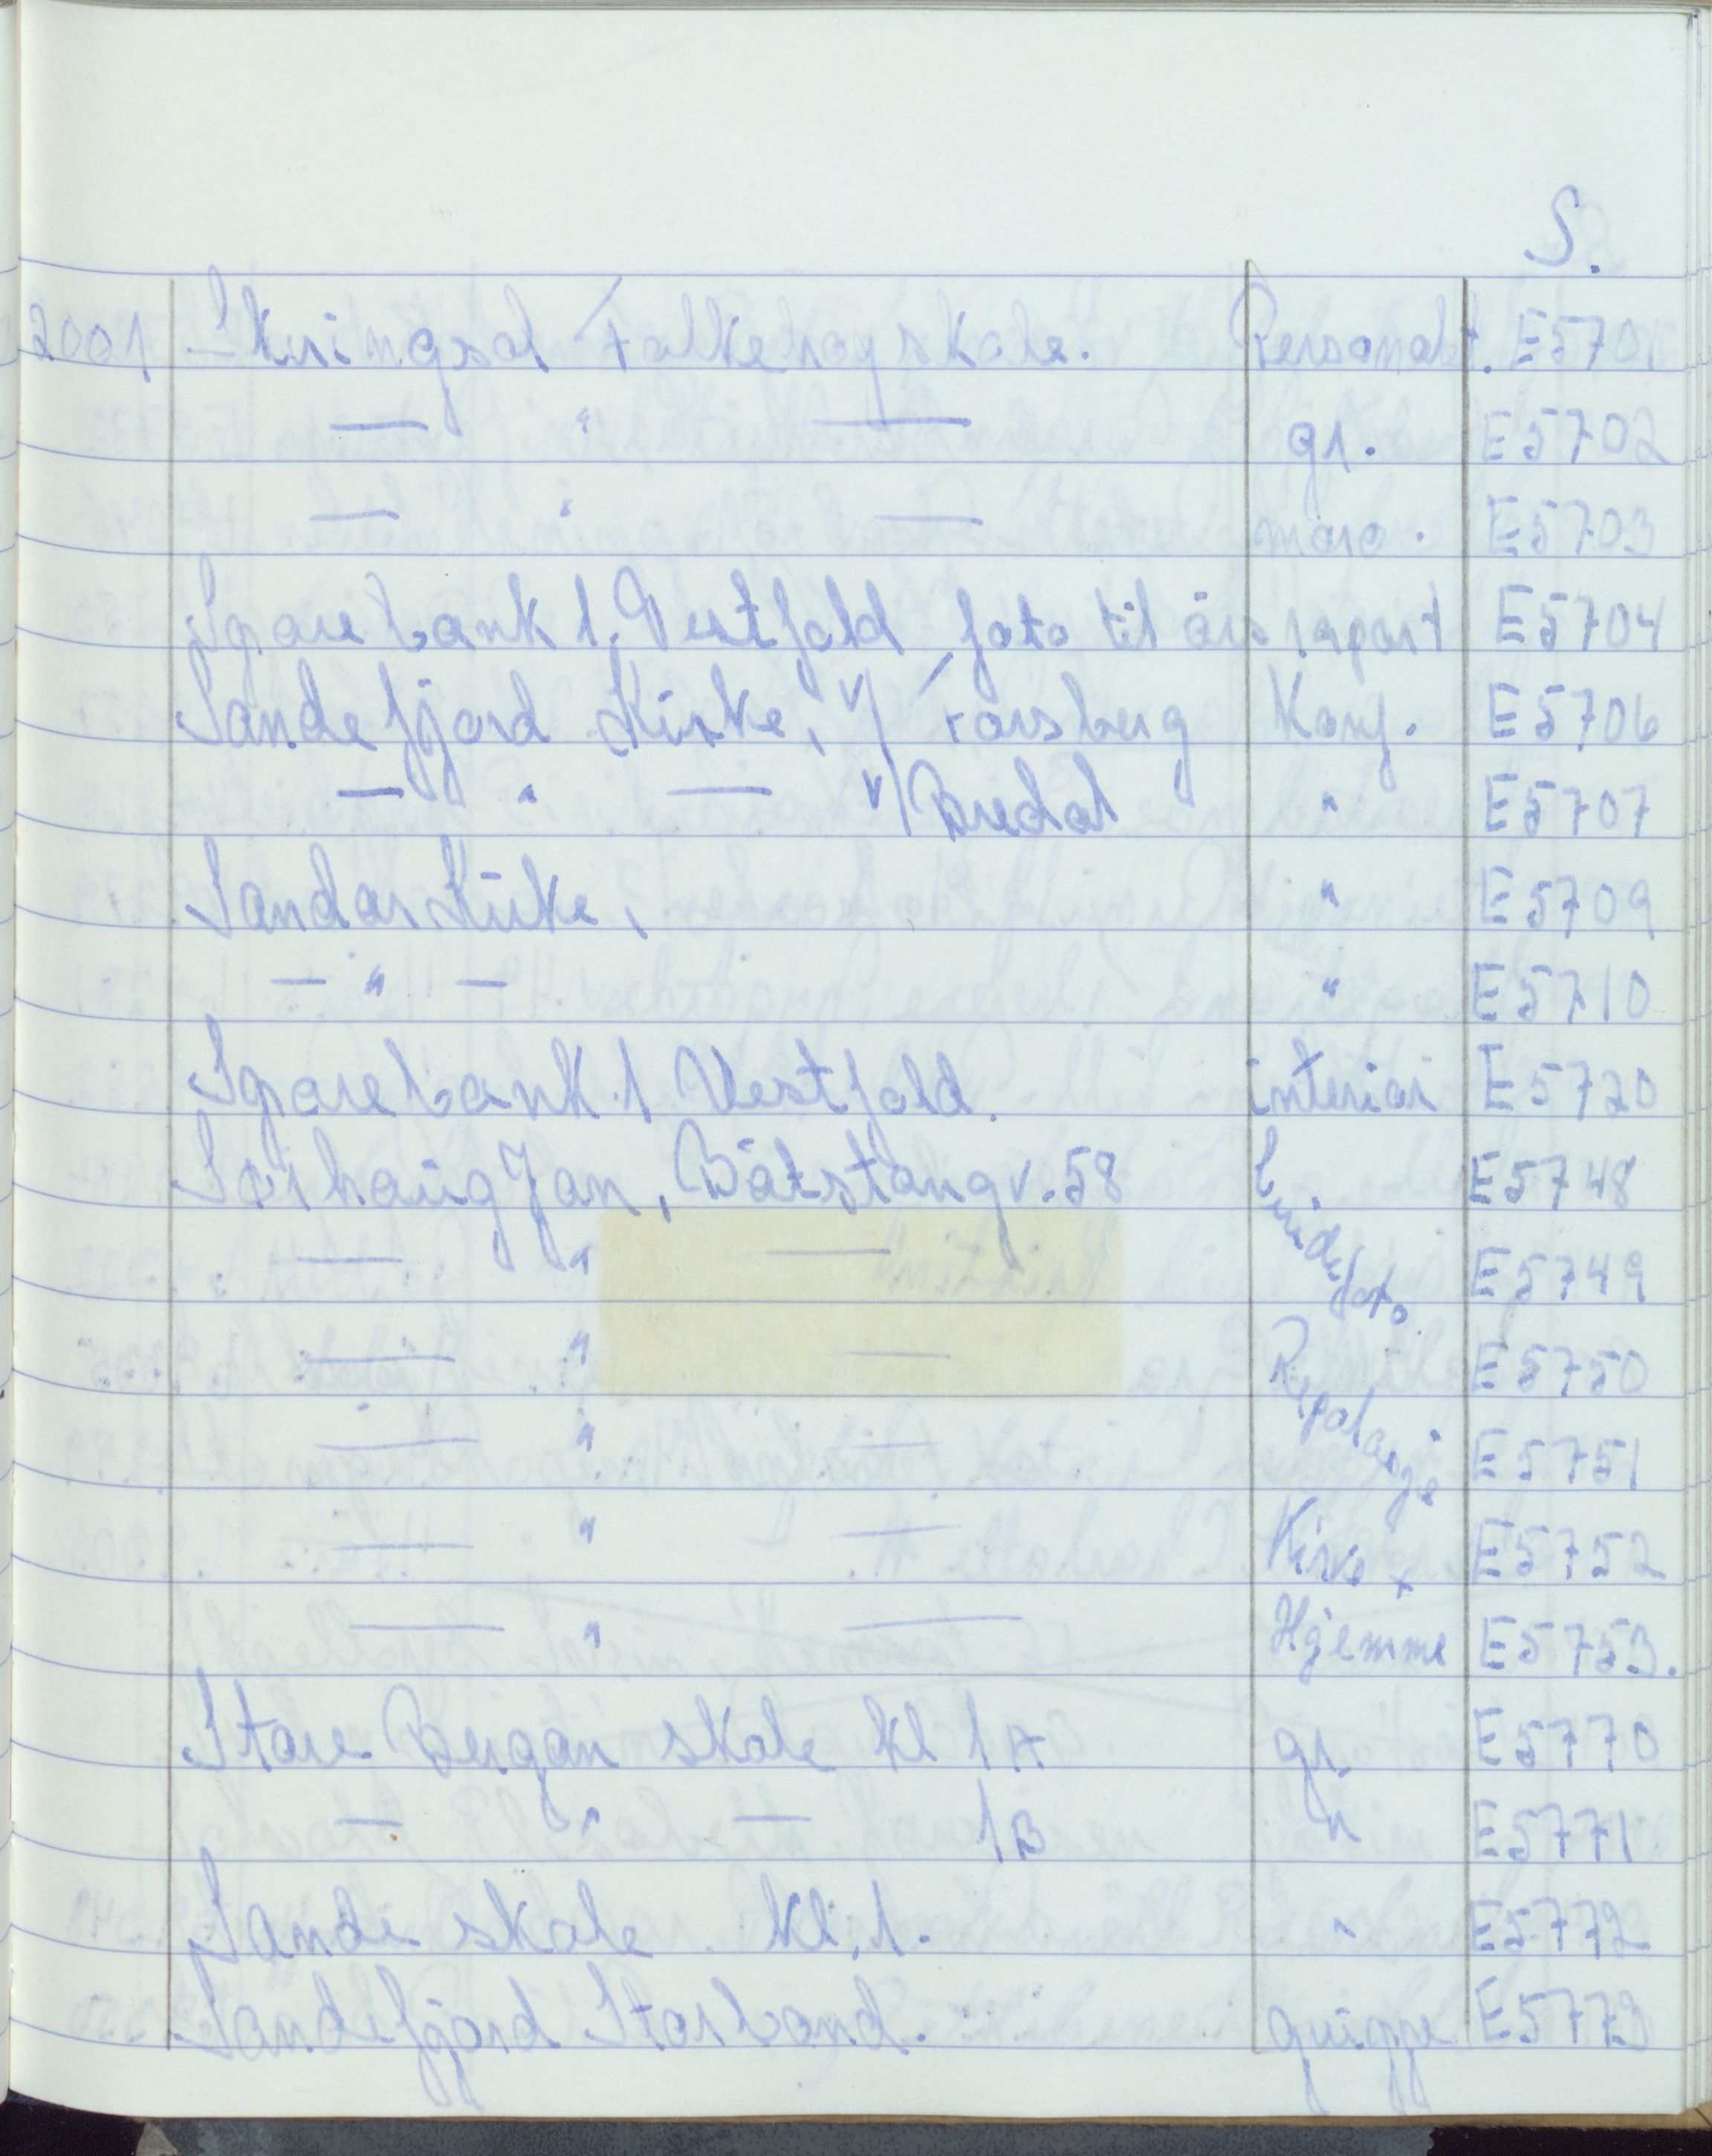 S.
2001 Skringsal Folkehøyskole. Personalet. E5701
— " — gr. E5702
— " — E5703
Sparebank 1, Vestfold foto til års raport E5704
Sandefjord Kirke, v/ Forsberg Konf. E5706
— " — v/ Bredal " E5707
Sandar Kirke, " E5709
— " — " E5710
Sparebank 1 Vestfold. interiør E5720
Sørhaug Jan, Båtstangv. 58 brudefoto E5748
— " — E5749
— " — Reportasje E5750
— " — E5751
— " — Kirke + E5752
— " — Hjemme E5753.
Store Bergan skole kl 1A gr. E5770
— " — 1B " E5771
Sande skole kl. 1. " E5772
Sandefjord Storband. gruppe E5773